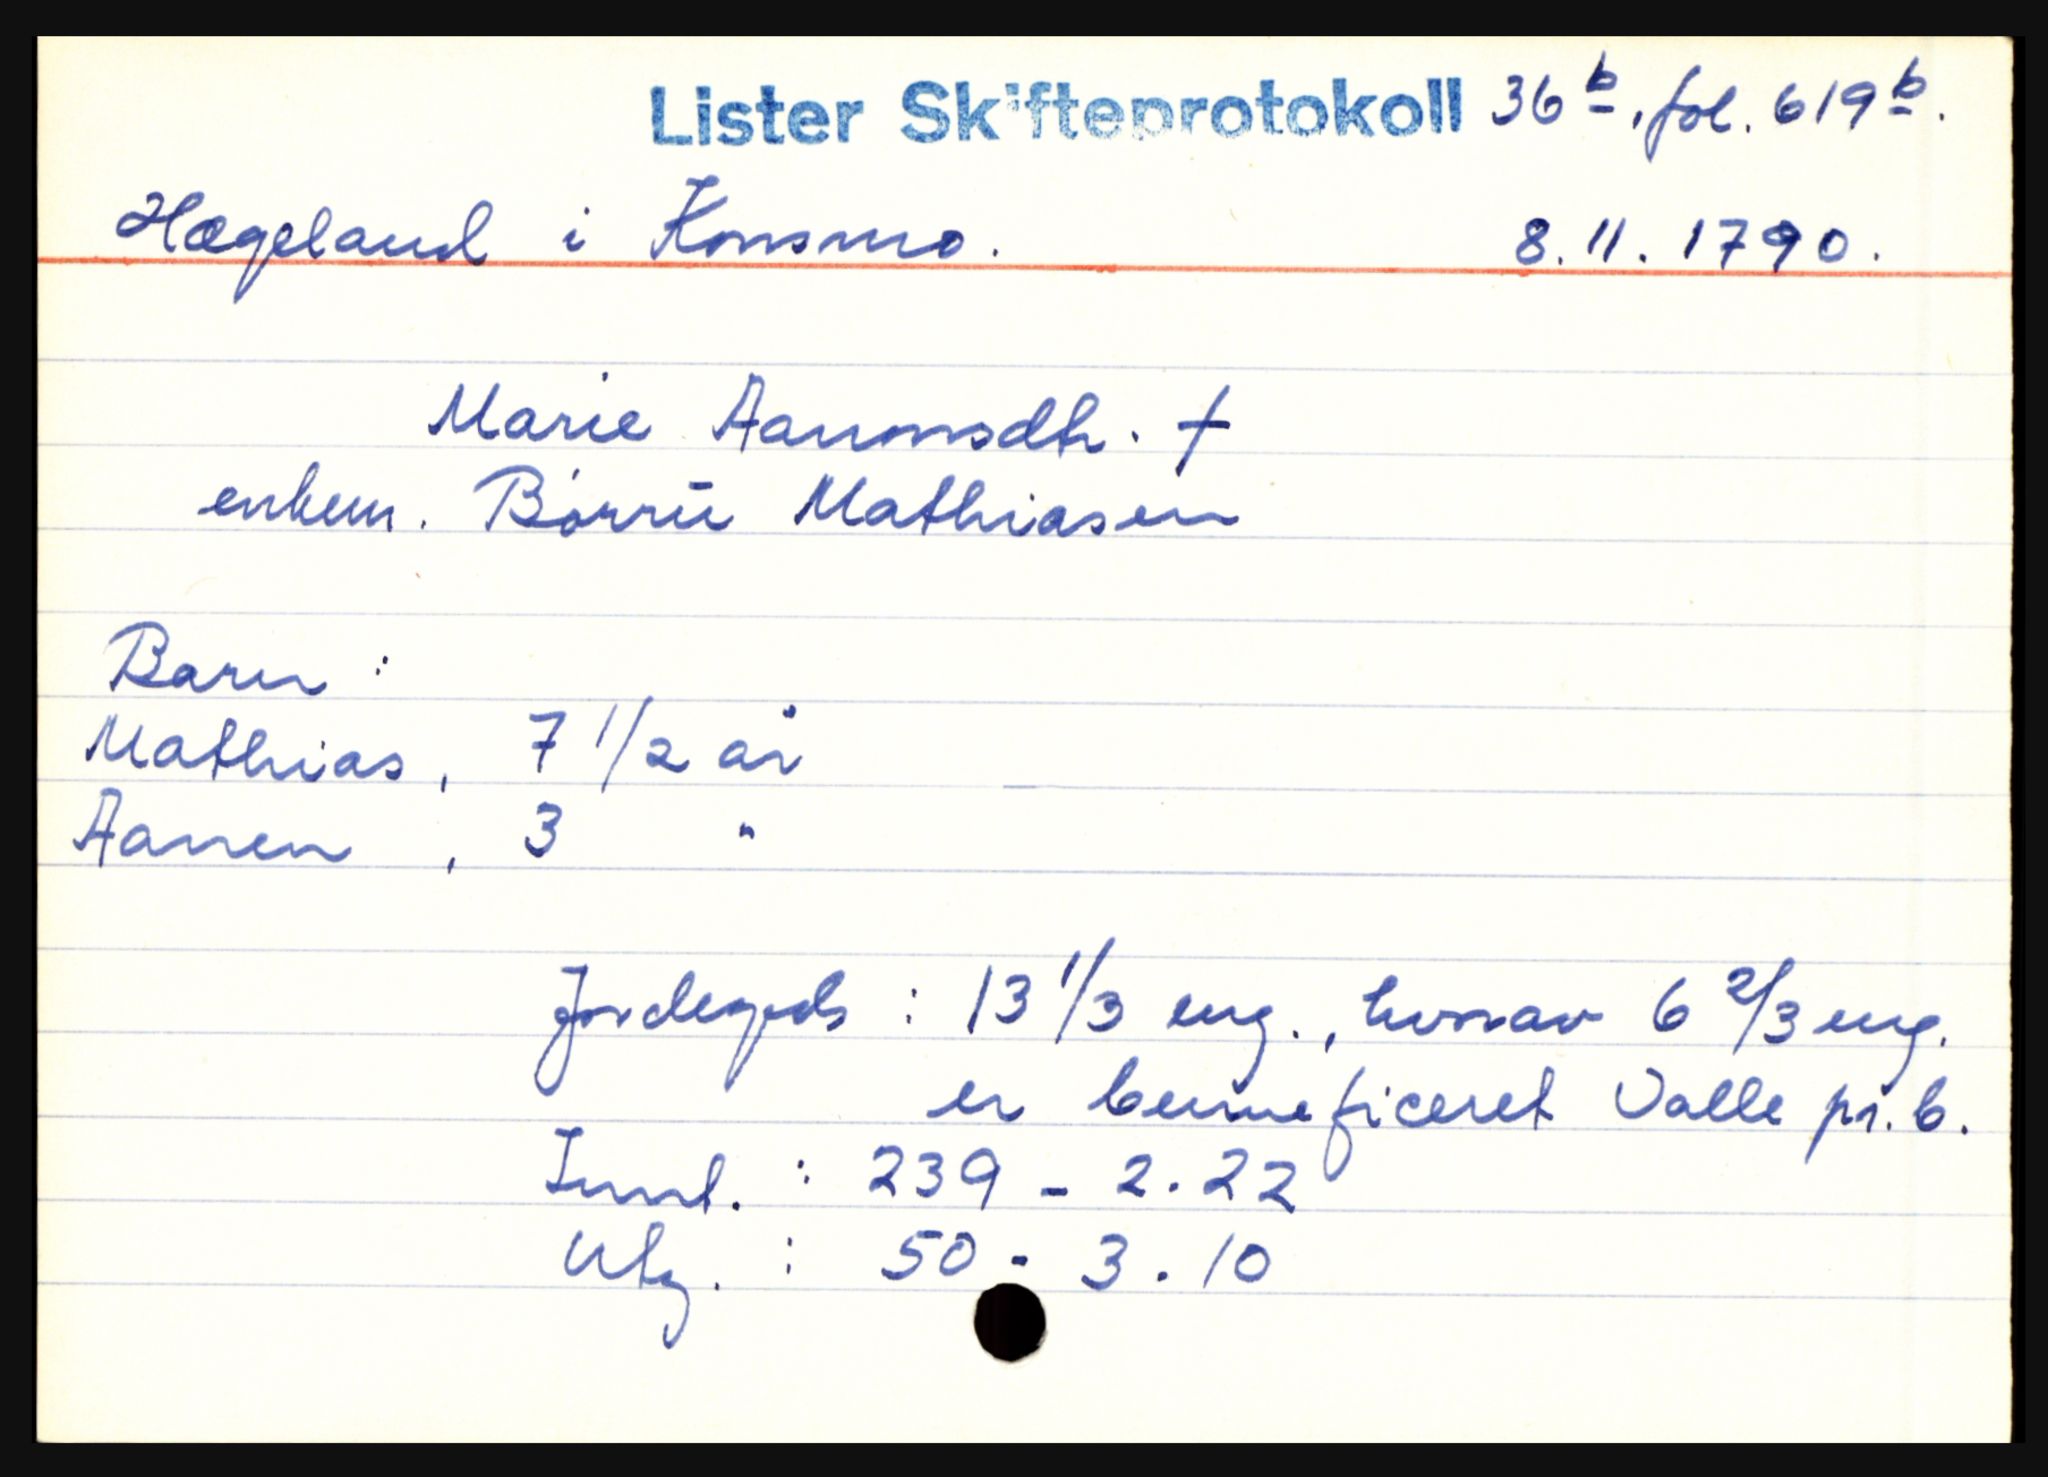 Lister Skifteprotokoll 36 b, fol. 619 b.
Hægeland i Konsmo. 8.11.1790.
Marie Aanonsdtr. †
enkem. Børrü Mathiasen
Barn :
Mathias, 7 1/2 år
Aanen , 3 "
Jordegods : 13 1/3 eng., hvorav 6 2/3 eng.
er benneficeret Valle pr. b.
Innt. : 239 - 2.22
Utg. : 50 - 3.10